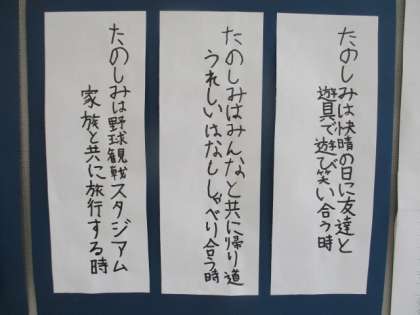 たのしみは快晴の日に友達と
遊具で遊び笑い合う時
たのしみはみんなと共に帰り道
うれしいはなししゃべり合う時
たのしみは野球観戦スタジアム
家族と共に旅行する時